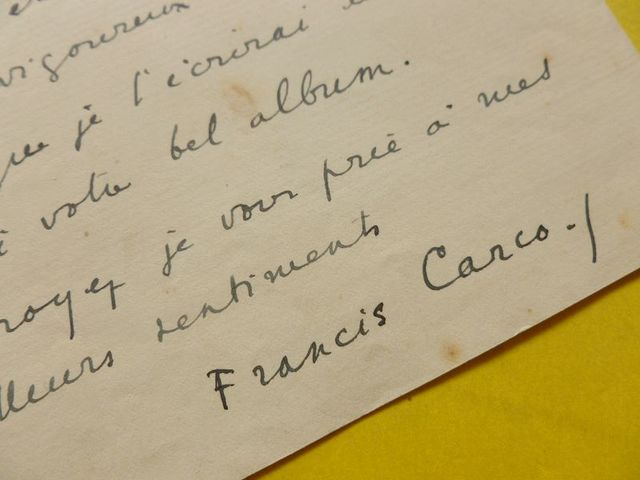 vigoureux
que je l'écrirai
votre bel album.
royez je vous prie à mes
lleurs sentiments
Francis Carco.